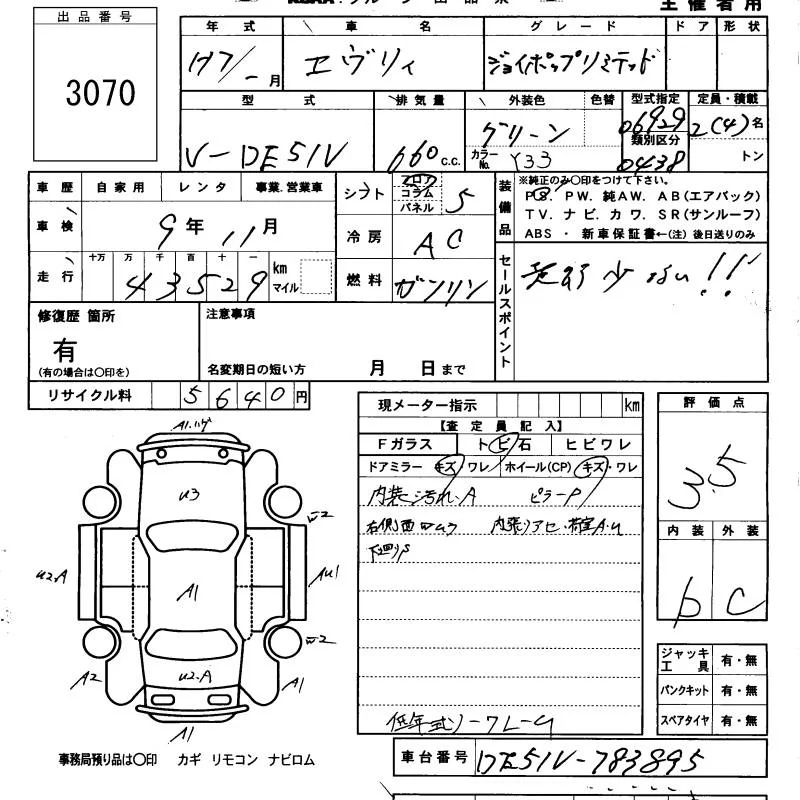 主催者用
出品番号
3070
年式 車名 グレード ドア 形状
H7/ 月 エヴリィ ジョイポップリミテッド
型式 排気量 外装色 色替 型式指定 定員・積載
V-DE51V 660 c.c. グリーン 06929 2(4)名
カラーNo. Y33 類別区分 0438 トン
車歴 自家用 レンタ 事業.営業車
シフト フロア コラム パネル 5
装備品
※純正のみ〇印をつけて下さい。
PS. PW. 純AW. AB(エアバック)
TV. ナビ. カワ. SR(サンルーフ)
ABS ・ 新車保証書←(注) 後日送りのみ
車検 9年 11月
冷房 AC
走行 十万 万 千 百 十 一
43529 km マイル
燃料 ガソリン
セールスポイント
少ない!!
修復歴 箇所
有
(有の場合は〇印を)
注意事項
名変期日の短い方 月 日まで
リサイクル料 5640円
現メーター指示 km
【査定員記入】
Fガラス トビ石 ヒビワレ
ドアミラー キズ ワレ ホイール(CP) キズ・ワレ
内装 汚れ.A ピラーP
右側面
下廻りS
低年式
評価点
3.5
内装 外装
b C
ジャッキ工具 有・無
パンクキット 有・無
スペアタイヤ 有・無
U3
U2.A A1 AU1
A2 U2.A A1
A1
事務局預り品は〇印 カギ リモコン ナビロム
車台番号 DE51V-783895